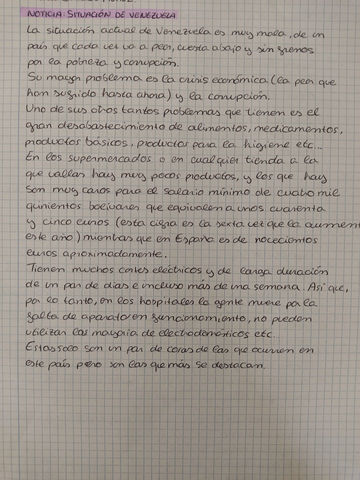 NOTICIA: SITUACIÓN DE VENEZUELA
La situación actual de Venezuela es muy mala, de un
país que cada vez va a peor, cuesta abajo y sin frenos
por la pobreza y corrupción.
Su mayor problema es la crisis económica (la peor que
han sufrido hasta ahora) y la corrupción.
Uno de sus otros tantos problemas que tienen es el
gran desabastecimiento de alimentos, medicamentos,
productos básicos, productos para la higiene etc...
En los supermercados o en cualquier tienda a la
que vallan hay muy pocos productos, y los que hay
son muy caros para el salario mínimo de cuatro mil
quinientos bolivares que equivalen a unos cuarenta
y cinco euros (esta cifra es la sexta vez que la aumentan
este año) mientras que en España es de novecientos
euros aproximadamente.
Tienen muchos cortes eléctricos y de larga duración
de un par de días e incluso más de una semana. Así que,
por lo tanto, en los hospitales la gente muere por la
falta de aparatos en funcionamiento, no pueden
utilizar las mayoria de electrodomésticos etc.
Estas solo son un par de cosas de las que ocurren en
este país pero son las que más se destacan.